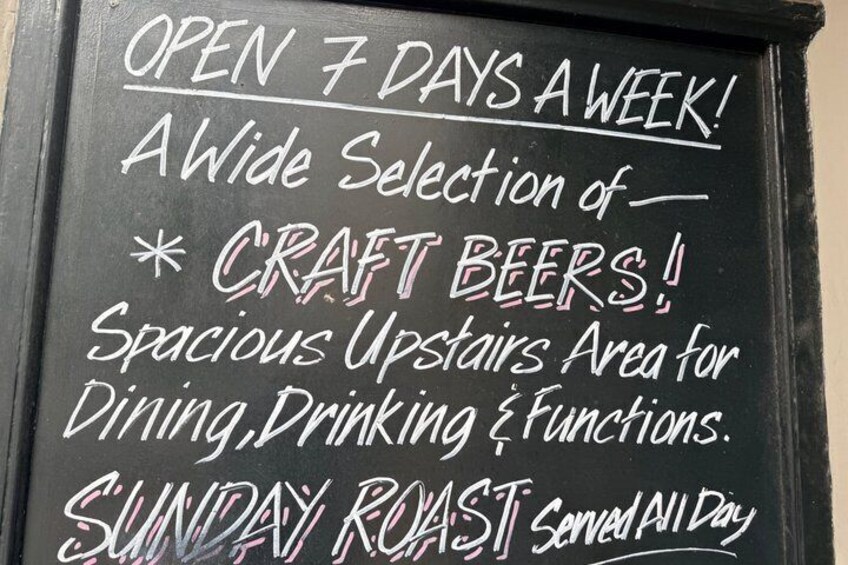 OPEN 7 DAYS A WEEK!
A Wide Selection of —
* CRAFT BEERS!
Spacious Upstairs Area for
Dining, Drinking & Functions.
SUNDAY ROAST Served All Day